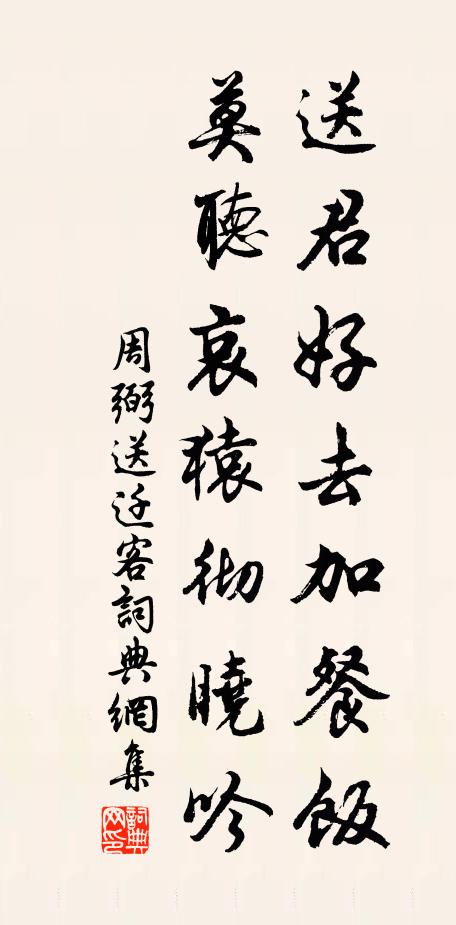 送君好去加餐飯
莫聽哀猿彻曉吟
周弼送迁客詞典網集
詞典网印